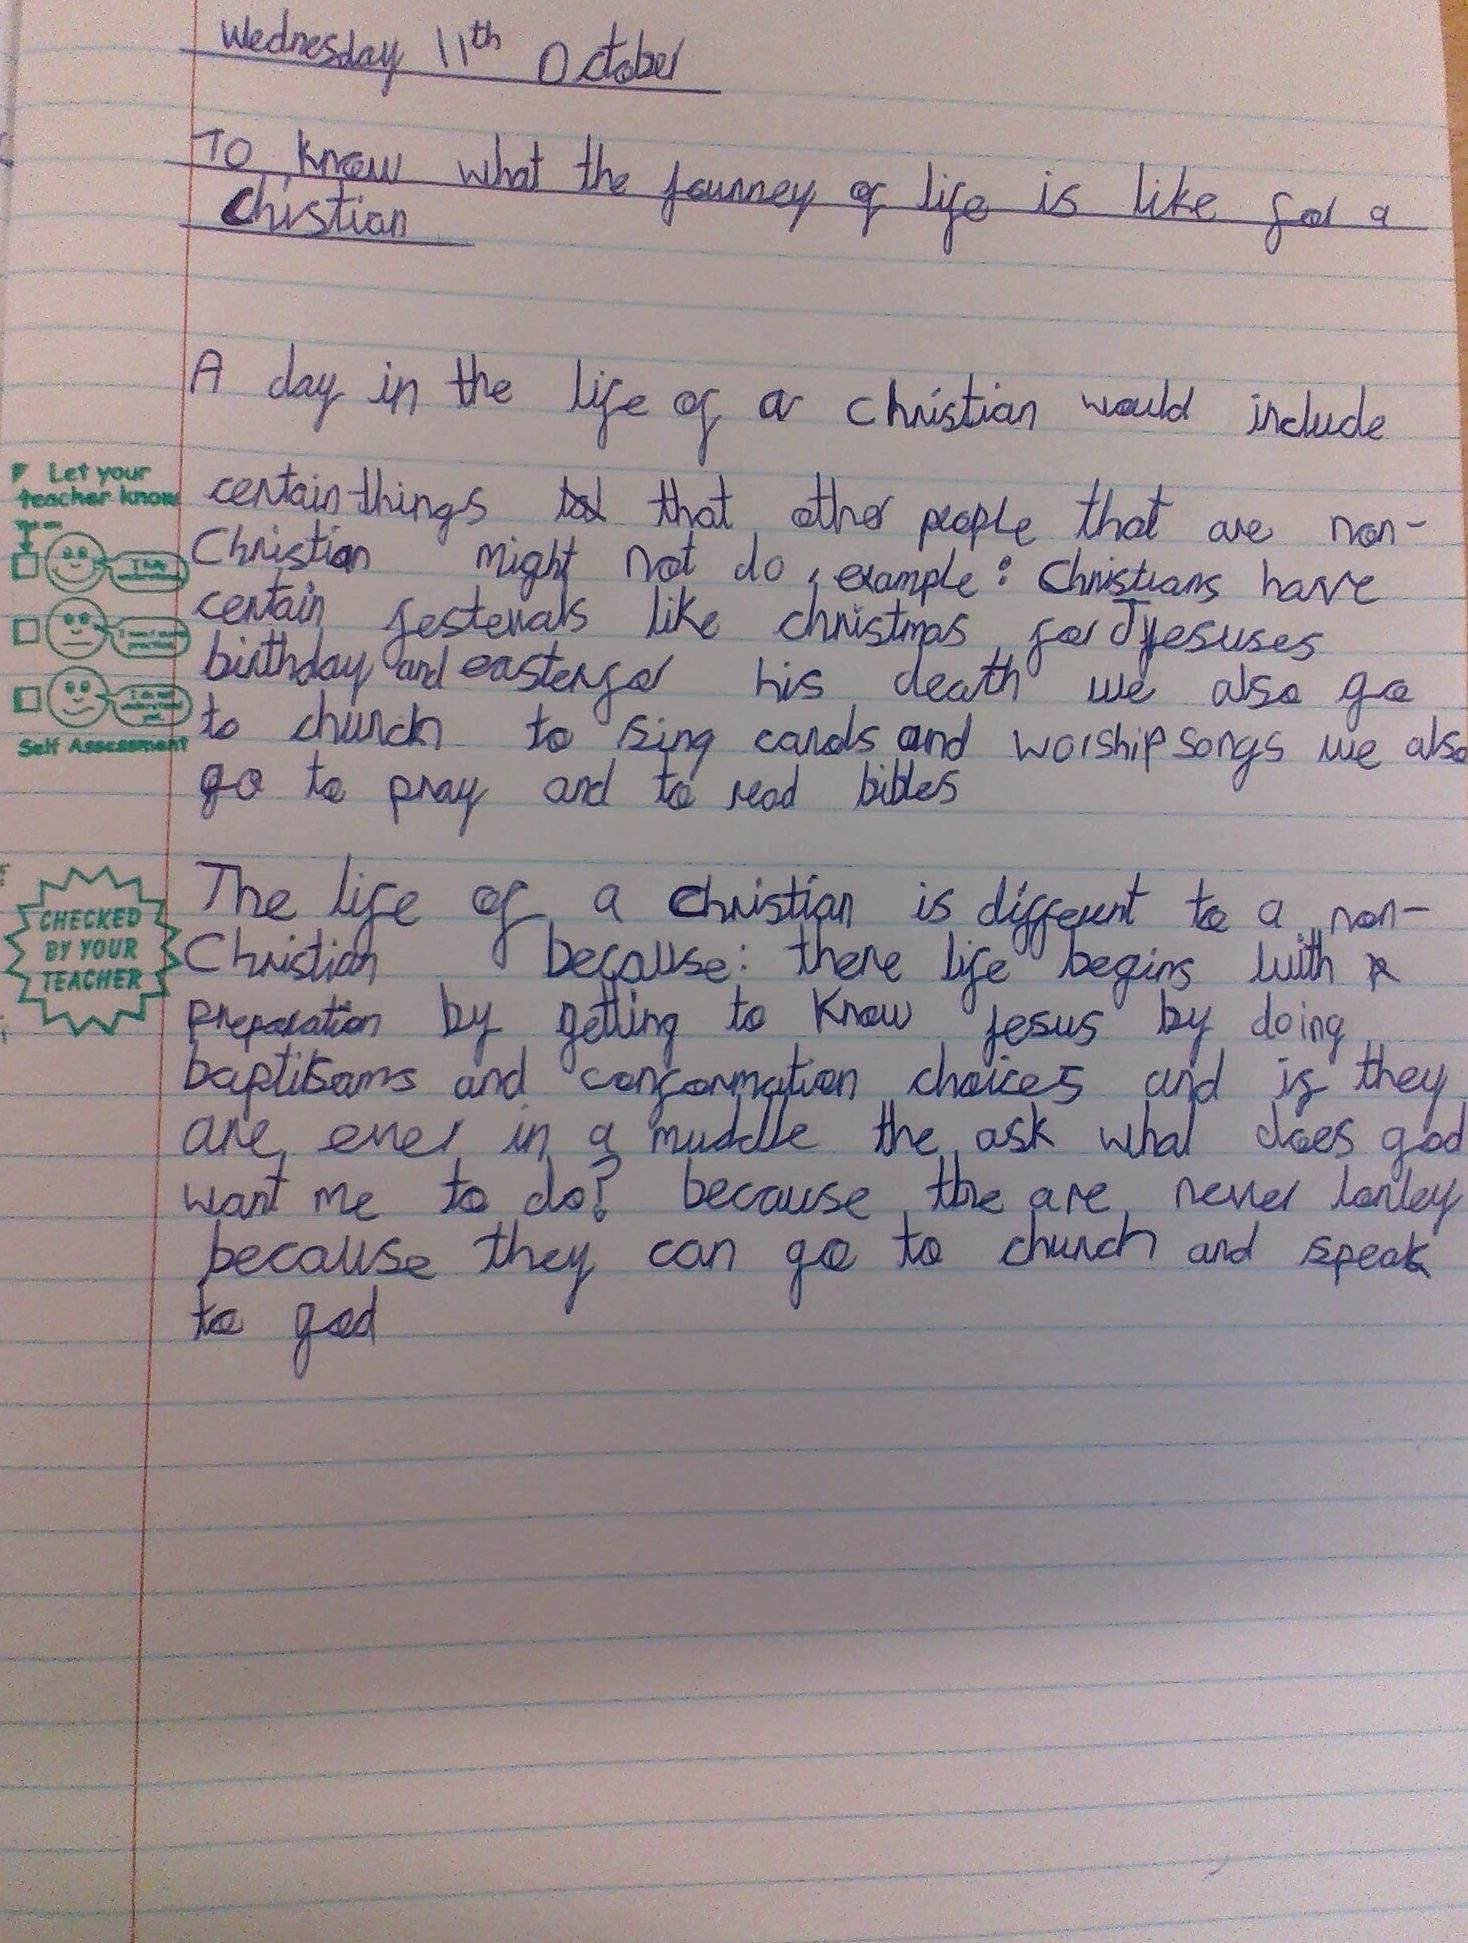 Wednesday 11th October
To know what the journey of life is like for a
Chistian
A day in the life of a christian would include
certain things that other people that are non-
Christian might not do, example: Christians have
certain festevals like christmas for Jesuses
birthday and easter for his death we also go
to church to sing carols and worship songs we also
go to pray and to read bibles
The life of a christian is different to a non-
Christian because: there life begins with
preparation by getting to know jesus by doing
baptisams and conformation choices and if they
are ever in a muddle the ask what does god
want me to do? because the are never lonley
because they can go to church and speak
to god
Let your
teacher know
Self Assessment
CHECKED
BY YOUR
TEACHER